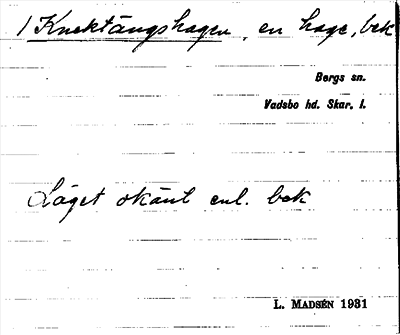 1 Knektängshagen, en hage, bek
Bergs sn.
Vadsbo hd. Skar. l.
Läget okänt enl. bek
L. MADSÉN 1931